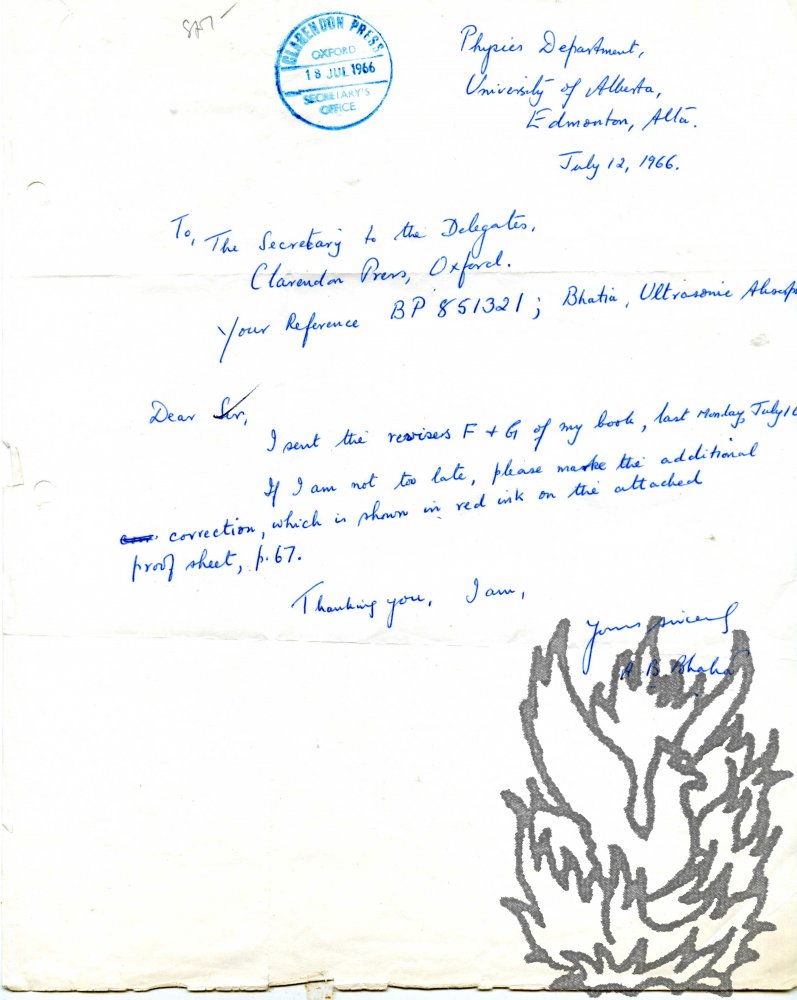 CLARENDON PRESS
OXFORD
18 JUL 1966
SECRETARY'S
OFFICE
Physics Department,
University of Alberta,
Edmonton, Alta.
July 12, 1966.
To, The Secretary to the Delegates,
Clarendon Press, Oxford.
Your Reference BP 851321; Bhatia, Ultrasonic Absorp
Dear Sir,
I sent the revises F + G of my book, last Monday, July
If I am not too late, please make the additional
correction, which is shown in red ink on the attached
proof sheet, p. 67.
Thanking you, I am,
Yours sincerely
A B Bhatia